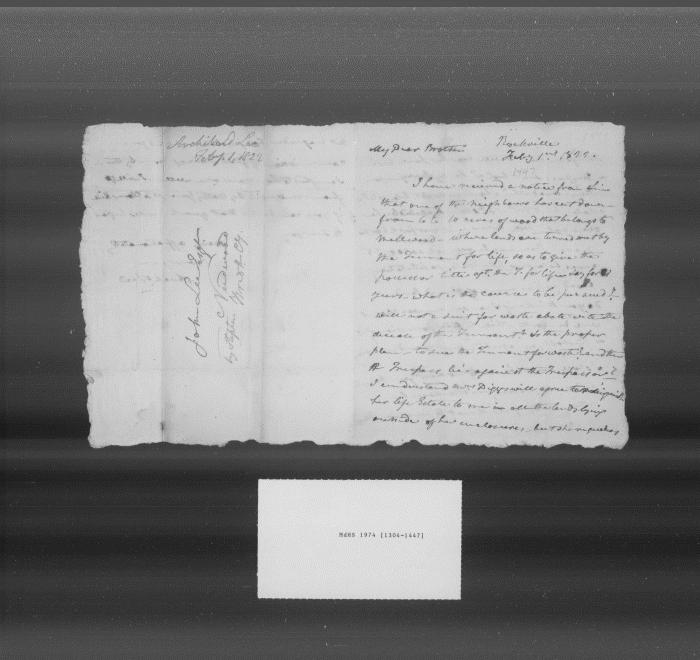 Archibald Lee
Feby 1. 1822
John Lee Esqr
Needwood
by
My Dear Brother
Rockville
Feby 1st 1822.
I have received a notice from
that one of the neighbours has cut down
from 6 to 10 acres of wood that belongs to
Mellwood - where lands are turned out by
the Tennant for life, so as to give the
possessor title agt. the T. for life say for 21
years what is the course to be pursued?
will not a suit for waste abate with the
decease of the Tennant? Is the proper
plan to sue the Tennant for waste? and then
the Trespass lies against the Trespassor?
I understand Mrs Diggs will agree to relinquish
her life Estate to me in all the lands lying
outside of her enclosures, but she requires
MdHR 1974 [1304-1447]